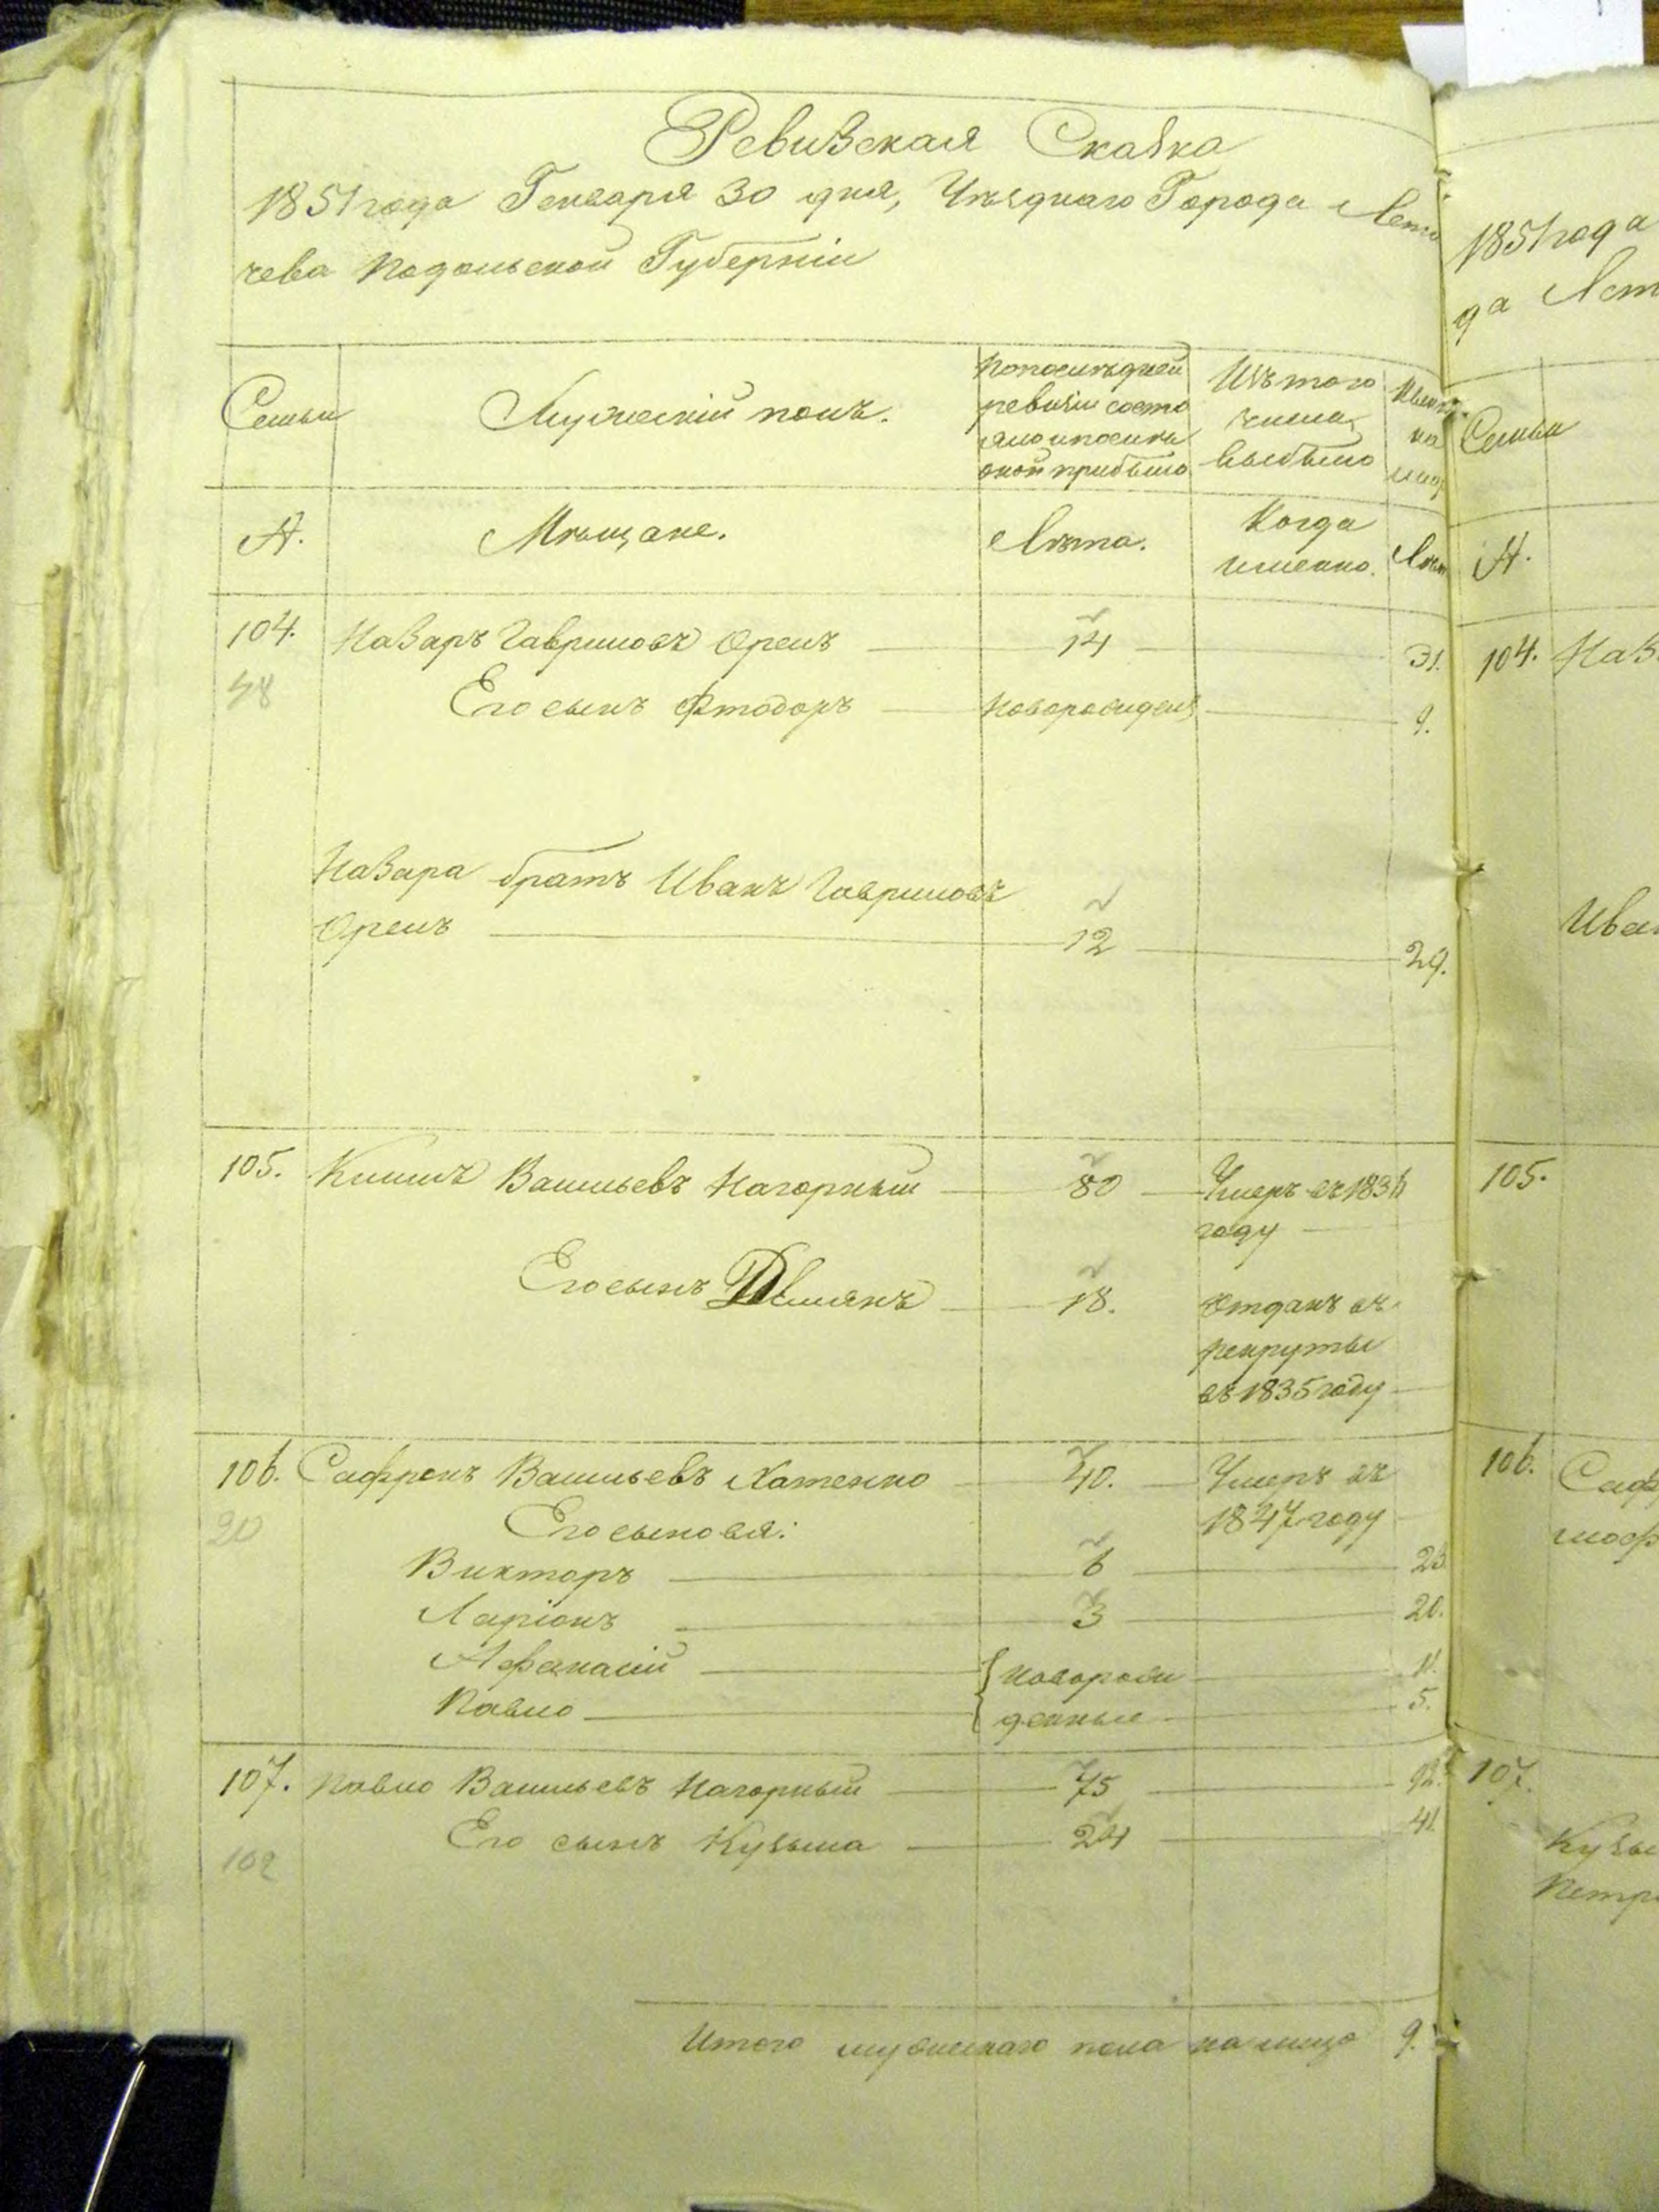 Ревизская Сказка
1851 года Генваря 30 дня, Уѣзднаго Города Лети
чева Подольской Губерніи
Семьи
Мужескій полъ.
По послѣдней
ревизіи состо
яло и послѣ
оной прибыло
Изъ того
числа
выбыло
Нынѣ
на
лицо
А.
Мѣщане.
Лѣта.
Когда
именно.
Лѣт
104.
58
Назаръ Гавриловъ Орелъ
14
31.
Его сынъ Фтодоръ
новорожденъ
9.
Назара братъ Иванъ Гавриловъ
Орелъ
12
29.
105.
Васильевъ Нагорный
80
Умеръ въ 1836
году
Его сынъ Демянъ
18.
Отданъ въ
рекруты
въ 1835 году
106.
20
Сафронъ Васильевъ Хатенко
40.
Умеръ въ
1847 году
Его сыновья:
Викторъ
6
23
Ларіонъ
3
20.
Афанасій
новорож
11.
Павло
денные
5.
107.
102
Павло Васильевъ Нагорный
75
92.
Его сынъ Кузьма
24
41.
Итого мужескаго пола на лицо
9.
1851 года
да Лет
Семьи
А.
104. Наз
Иван
105.
106.
Саф
107.
Кузь
Петр